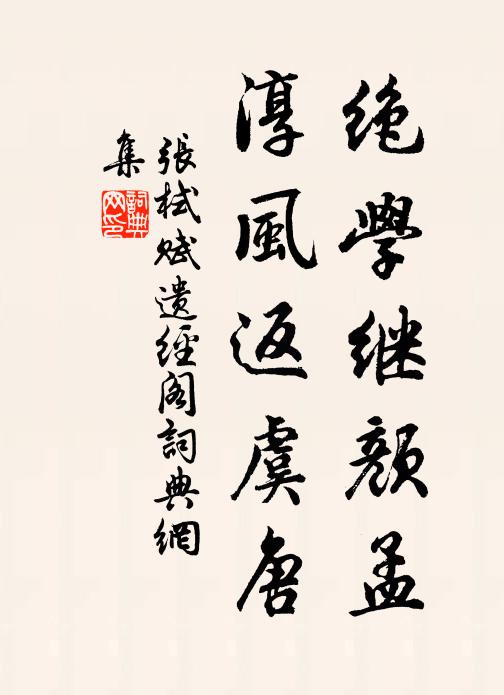 绝學继颜孟
淳風返虞唐
張栻赋遗經阁詞典網
集
詞典网印